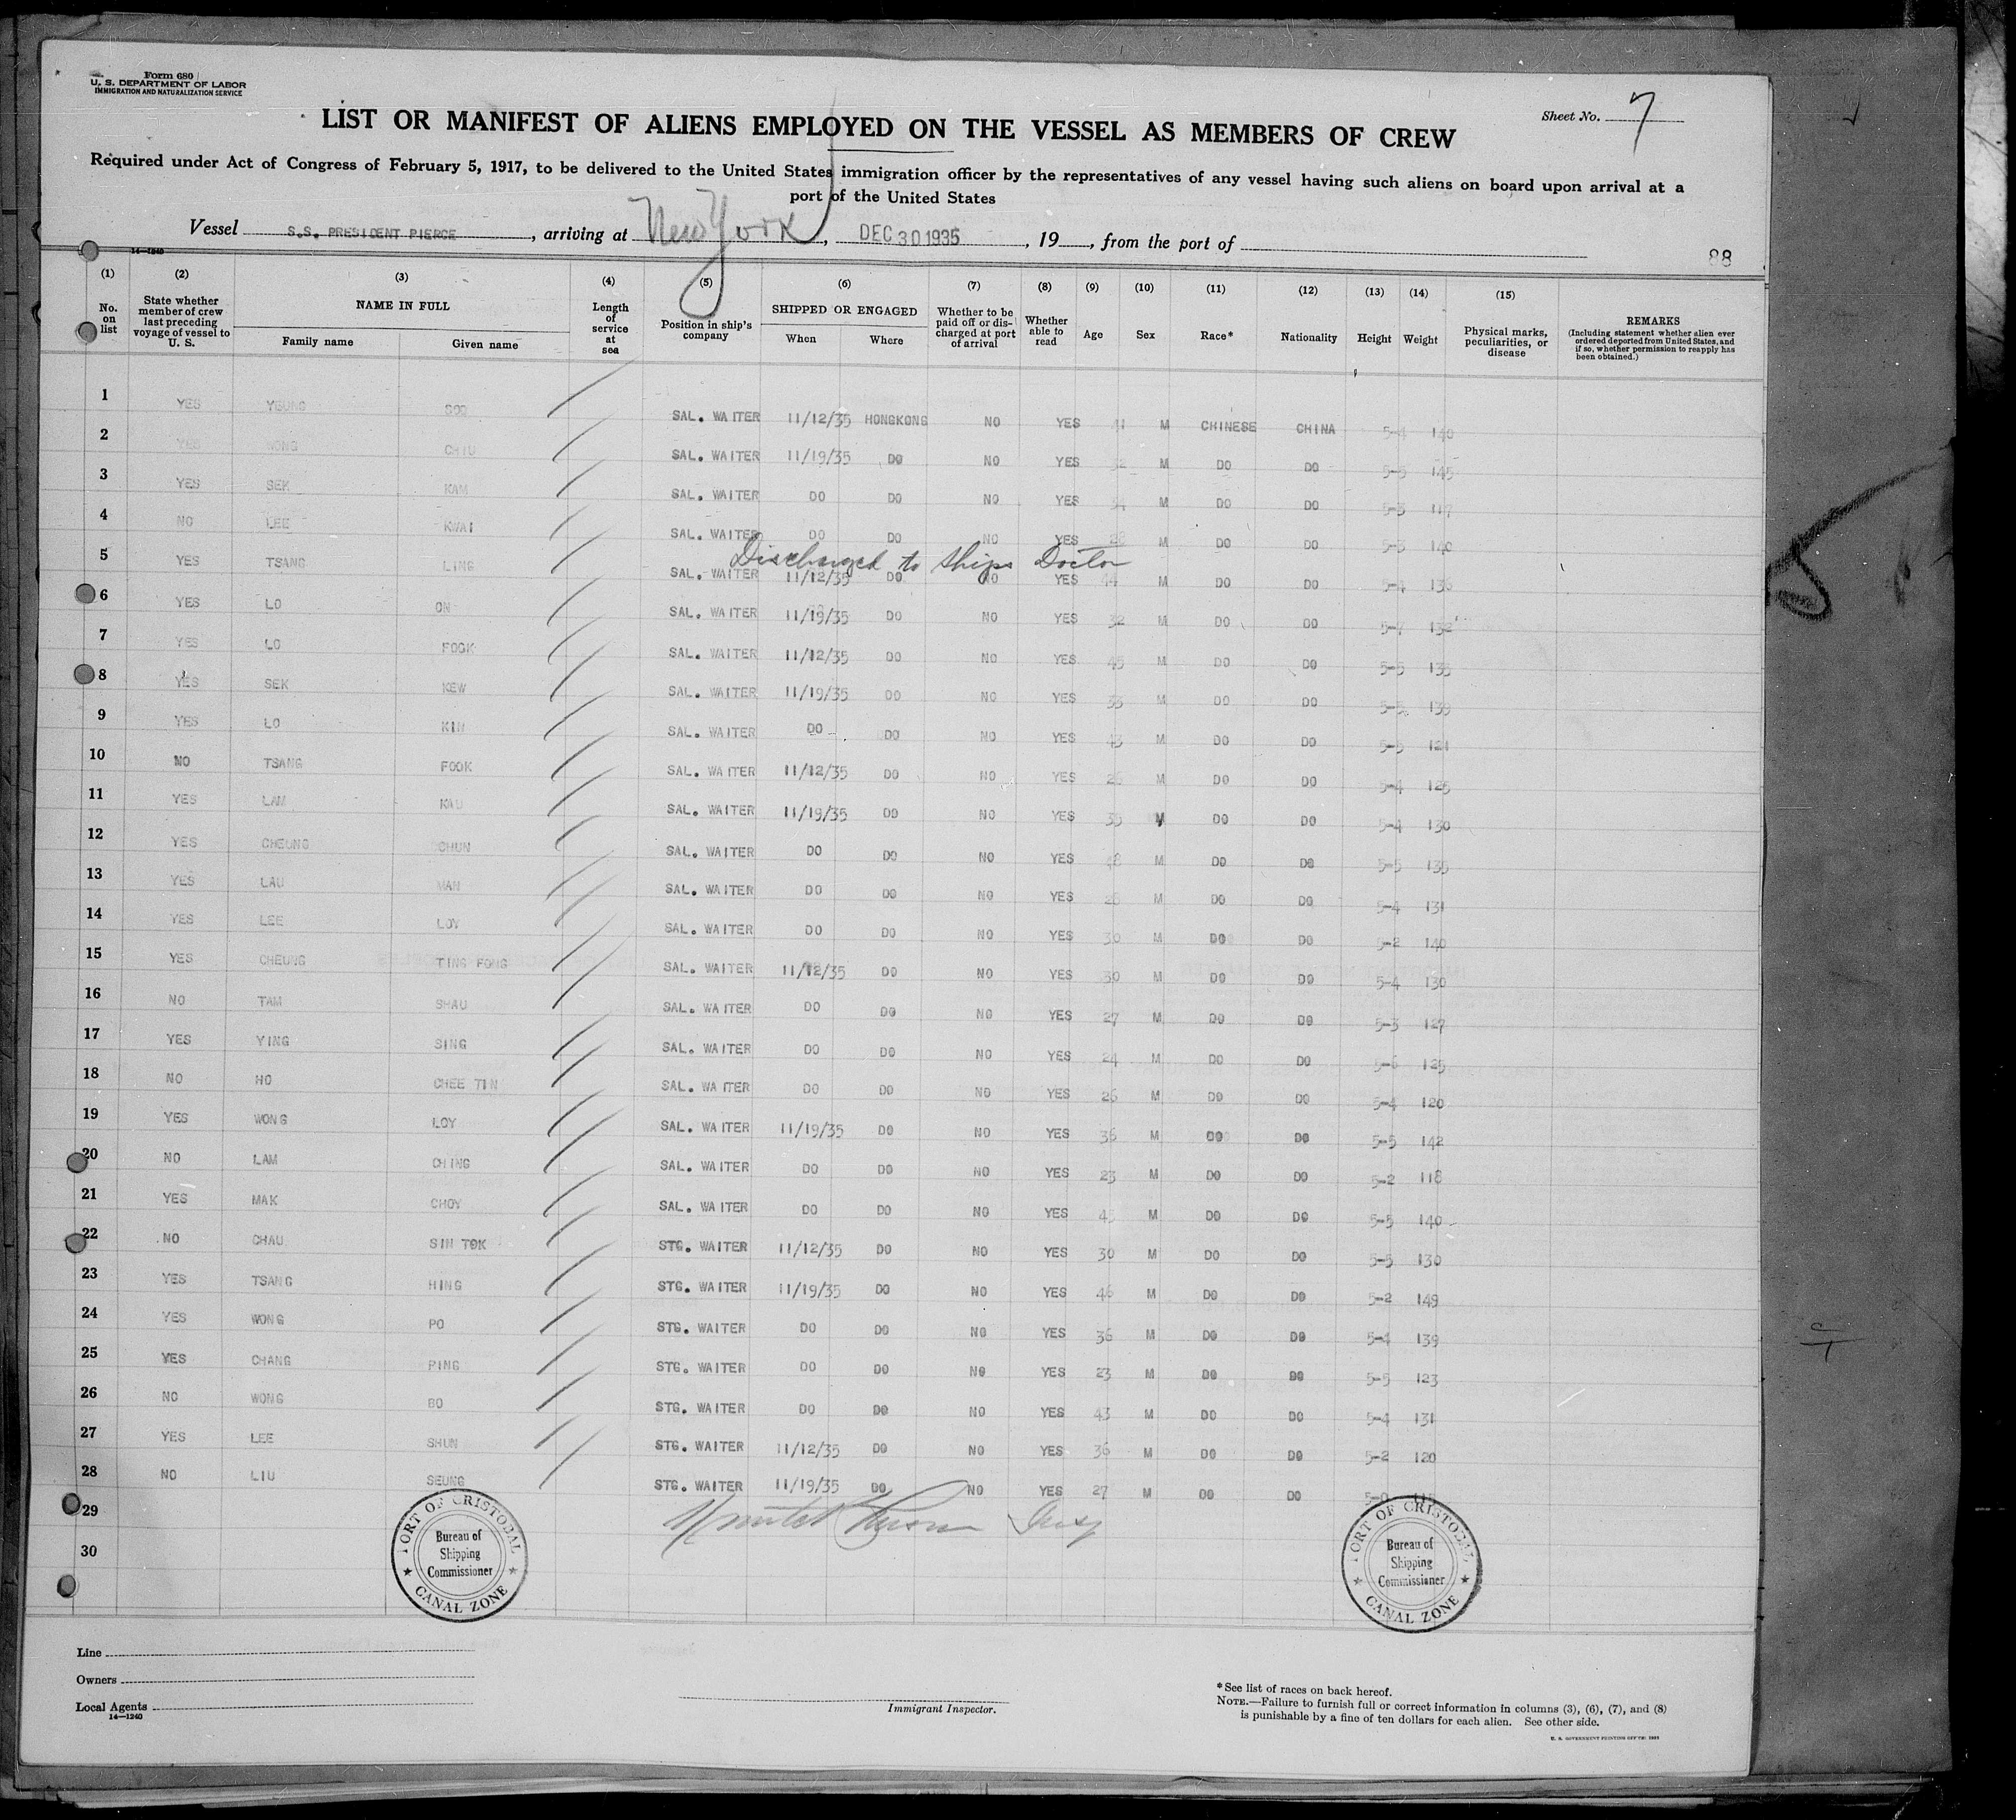 Form 680
U. S. DEPARTMENT OF LABOR
IMMIGRATION AND NATURALIZATION SERVICE
Sheet No. 7
LIST OR MANIFEST OF ALIENS EMPLOYED ON THE VESSEL AS MEMBERS OF CREW
Required under Act of Congress of February 5, 1917, to be delivered to the United States immigration officer by the representatives of any vessel having such aliens on board upon arrival at a
port of the United States
Vessel S.S. PRESIDENT PIERCE, arriving at New York, DEC 30 1935, 19, from the port of
14—1240
88
(1) (2) (3) (4) (5) (6) (7) (8) (9) (10) (11) (12) (13) (14) (15)
No. on list State whether member of crew last preceding voyage of vessel to U. S. NAME IN FULL Family name Given name Length of service at sea Position in ship's company SHIPPED OR ENGAGED When Where Whether to be paid off or discharged at port of arrival Whether able to read Age Sex Race* Nationality Height Weight Physical marks, peculiarities, or disease REMARKS (Including statement whether alien ever ordered deported from United States, and if so, whether permission to reapply has been obtained.)
1 YES YEUNG SOO SAL. WAITER 11/12/35 HONGKONG NO YES 41 M CHINESE CHINA 5-4 140
2 YES WONG CHIU SAL. WAITER 11/19/35 DO NO YES 32 M DO DO 5-5 145
3 YES SEK KAM SAL. WAITER DO DO NO YES 34 M DO DO 5-3 117
4 NO LEE KWAI SAL. WAITER DO DO NO YES 28 M DO DO 5-3 140
Discharged to Ships Doctor
5 YES TSANG LING SAL. WAITER 11/12/35 DO NO YES 44 M DO DO 5-4 136
6 YES LO ON SAL. WAITER 11/19/35 DO NO YES 32 M DO DO 5-7 132
7 YES LO FOOK SAL. WAITER 11/12/35 DO NO YES 45 M DO DO 5-5 135
8 YES SEK KEW SAL. WAITER 11/19/35 DO NO YES 33 M DO DO 5-5 139
9 YES LO KIN SAL. WAITER DO DO NO YES 43 M DO DO 5-5 121
10 NO TSANG FOOK SAL. WAITER 11/12/35 DO NO YES 26 M DO DO 5-4 125
11 YES LAM KAU SAL. WAITER 11/19/35 DO NO YES 35 M DO DO 5-4 130
12 YES CHEUNG CHUN SAL. WAITER DO DO NO YES 48 M DO DO 5-5 135
13 YES LAU WAN SAL. WAITER DO DO NO YES 26 M DO DO 5-4 131
14 YES LEE LOY SAL. WAITER DO DO NO YES 30 M DO DO 5-2 140
15 YES CHEUNG TING FONG SAL. WAITER 11/12/35 DO NO YES 30 M DO DO 5-4 130
16 NO TAM SHAU SAL. WAITER DO DO NO YES 27 M DO DO 5-3 127
17 YES YING SING SAL. WAITER DO DO NO YES 24 M DO DO 5-6 125
18 NO HO CHEE TIN SAL. WAITER DO DO NO YES 26 M DO DO 5-4 120
19 YES WONG LOY SAL. WAITER 11/19/35 DO NO YES 36 M DO DO 5-5 142
20 NO LAM CHING SAL. WAITER DO DO NO YES 23 M DO DO 5-2 118
21 YES MAK CHOY SAL. WAITER DO DO NO YES 45 M DO DO 5-5 140
22 NO CHAU SIN TOK STG. WAITER 11/12/35 DO NO YES 30 M DO DO 5-5 130
23 YES TSANG HING STG. WAITER 11/19/35 DO NO YES 46 M DO DO 5-2 149
24 YES WONG PO STG. WAITER DO DO NO YES 36 M DO DO 5-4 139
25 YES CHANG PING STG. WAITER DO DO NO YES 23 M DO DO 5-5 123
26 NO WONG BO STG. WAITER DO DO NO YES 43 M DO DO 5-4 131
27 YES LEE SHUN STG. WAITER 11/12/35 DO NO YES 36 M DO DO 5-2 120
28 NO LIU SEUNG STG. WAITER 11/19/35 DO NO YES 27 M DO DO
29
30
PORT OF CRISTOBAL
Bureau of
Shipping
Commissioner
CANAL ZONE
PORT OF CRISTOBAL
Bureau of
Shipping
Commissioner
CANAL ZONE
Line
Owners
Local Agents
14—1240
Immigrant Inspector.
*See list of races on back hereof.
NOTE.—Failure to furnish full or correct information in columns (3), (6), (7), and (8)
is punishable by a fine of ten dollars for each alien. See other side.
U. S. GOVERNMENT PRINTING OFFICE: 1933